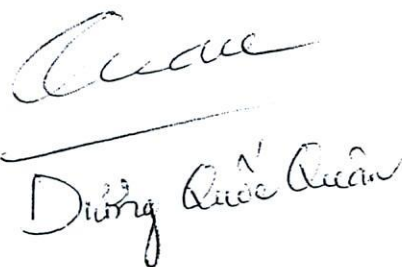 Quân
Dương Quốc Quân